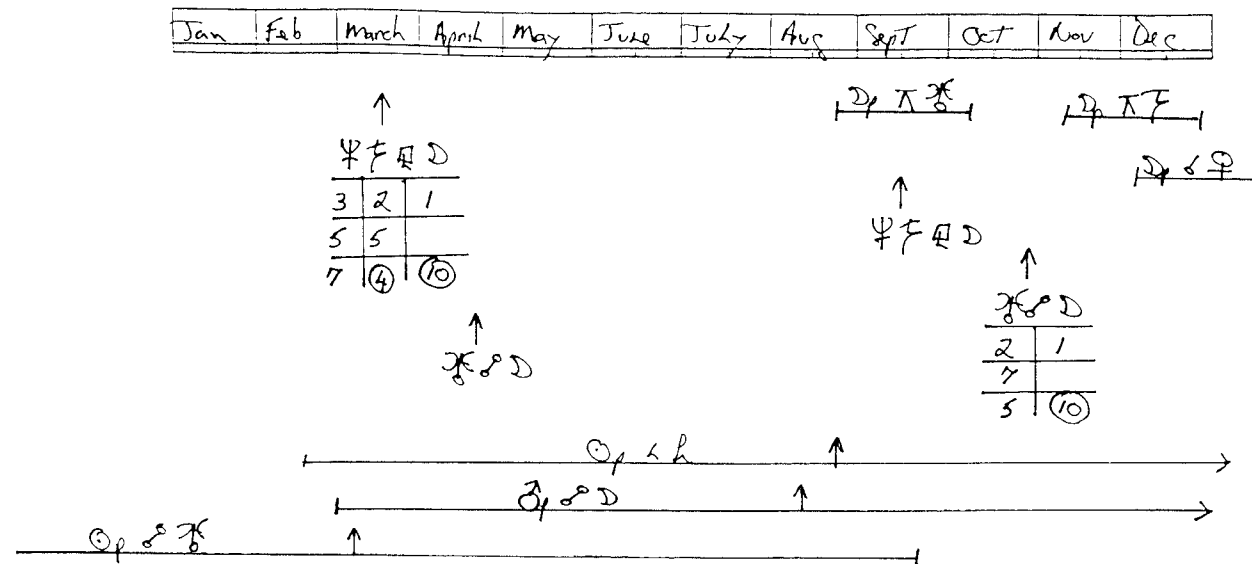 Jan Feb March April May June July Aug Sept Oct Nov Dec
☽p ⚻ ♅
☽p ⚻
☽p ☌ ♀
♆ □ ☽
3 2 1
5 5
7 4 10
♆ □ ☽
♅ ☍ ☽
♅ ☍ ☽
2 1
7
5 10
☉p ∠ ♄
♂p ☍ ☽
☉p ☍ ♅